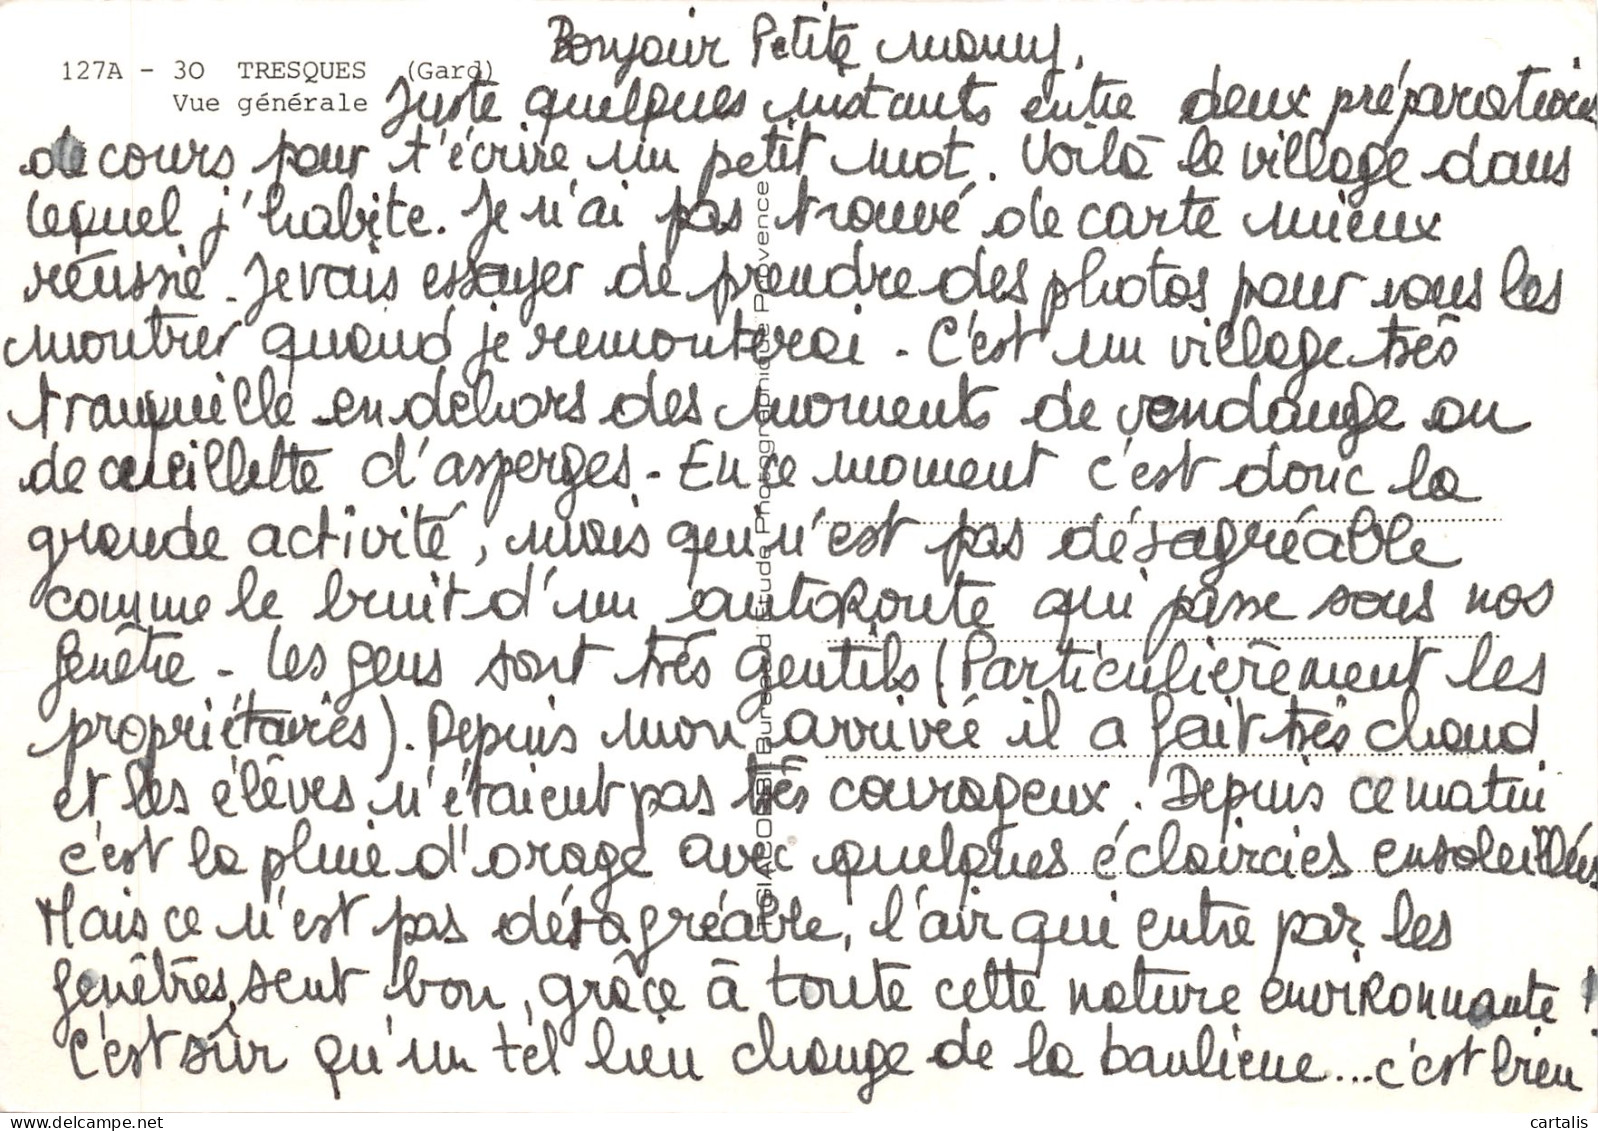 127A - 30 TRESQUES (Gard)
Vue générale
Bonjour Petite mamy,
Juste quelques instants entre deux préparations
de cours pour t'écrire un petit mot. Voilà le village dans
lequel j'habite. Je n'ai pas trouvé de carte mieux
réussie. Je vais essayer de prendre des photos pour vous les
montrer quand je remonterai. C'est un village très
tranquille en dehors des moments de vendange ou
de cueillette d'asperges. En ce moment c'est donc la
grande activité, mais qui n'est pas désagréable
comme le bruit d'un autoRoute qui passe sous nos
fenêtre. Les gens sont très gentils (Particulièrement les
propriétaires). Depuis mon arrivée il a fait très chaud
et les élèves n'étaient pas très courageux. Depuis ce matin
c'est la pluie d'orage avec quelques éclaircies ensoleillées
Mais ce n'est pas désagréable, l'air qui entre par les
fenêtres, sent bon, grâce à toute cette nature enviRonnante !
C'est sûr qu'un tel lieu change de la banlieue... c'est bien
Bureau d'Etude Photographique de Provence
cartalis